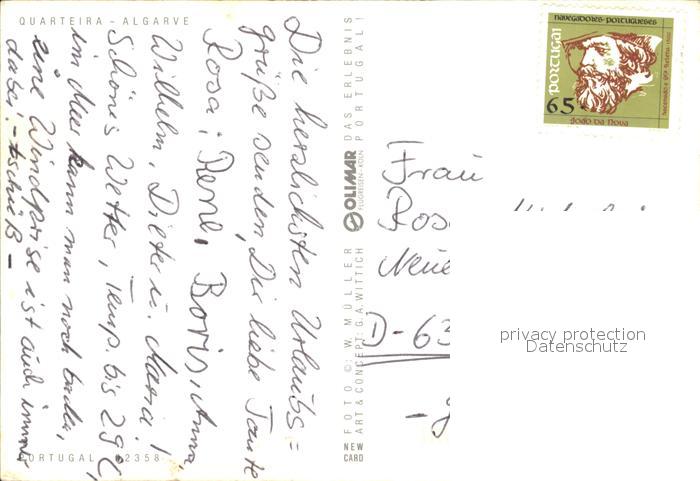 QUARTEIRA - ALGARVE
Die herzlichsten Urlaubs=
grüße senden, Dir liebe Tante
Rosa; Rene, Boris, Anna,
Wilhelm, Dieter u. Maria!
Schönes Wetter, Temp. bis 29°C,
im Meer kann man noch baden,
eine Windprise ist auch immer
dabei. - tschüß -
PORTUGAL 2358
FOTO ©: W. MÜLLER
ART & CONCEPT: G.A. WITTICH
OLIMAR
FLUGREISEN · KÖLN
DAS ERLEBNIS
PORTUGAL!
NEW
CARD
NAVEGADORES PORTUGUESES
PORTUGAL
65.-
JOÃO DA NOVA
Frau
Ros
Neue
D-63
privacy protection
Datenschutz